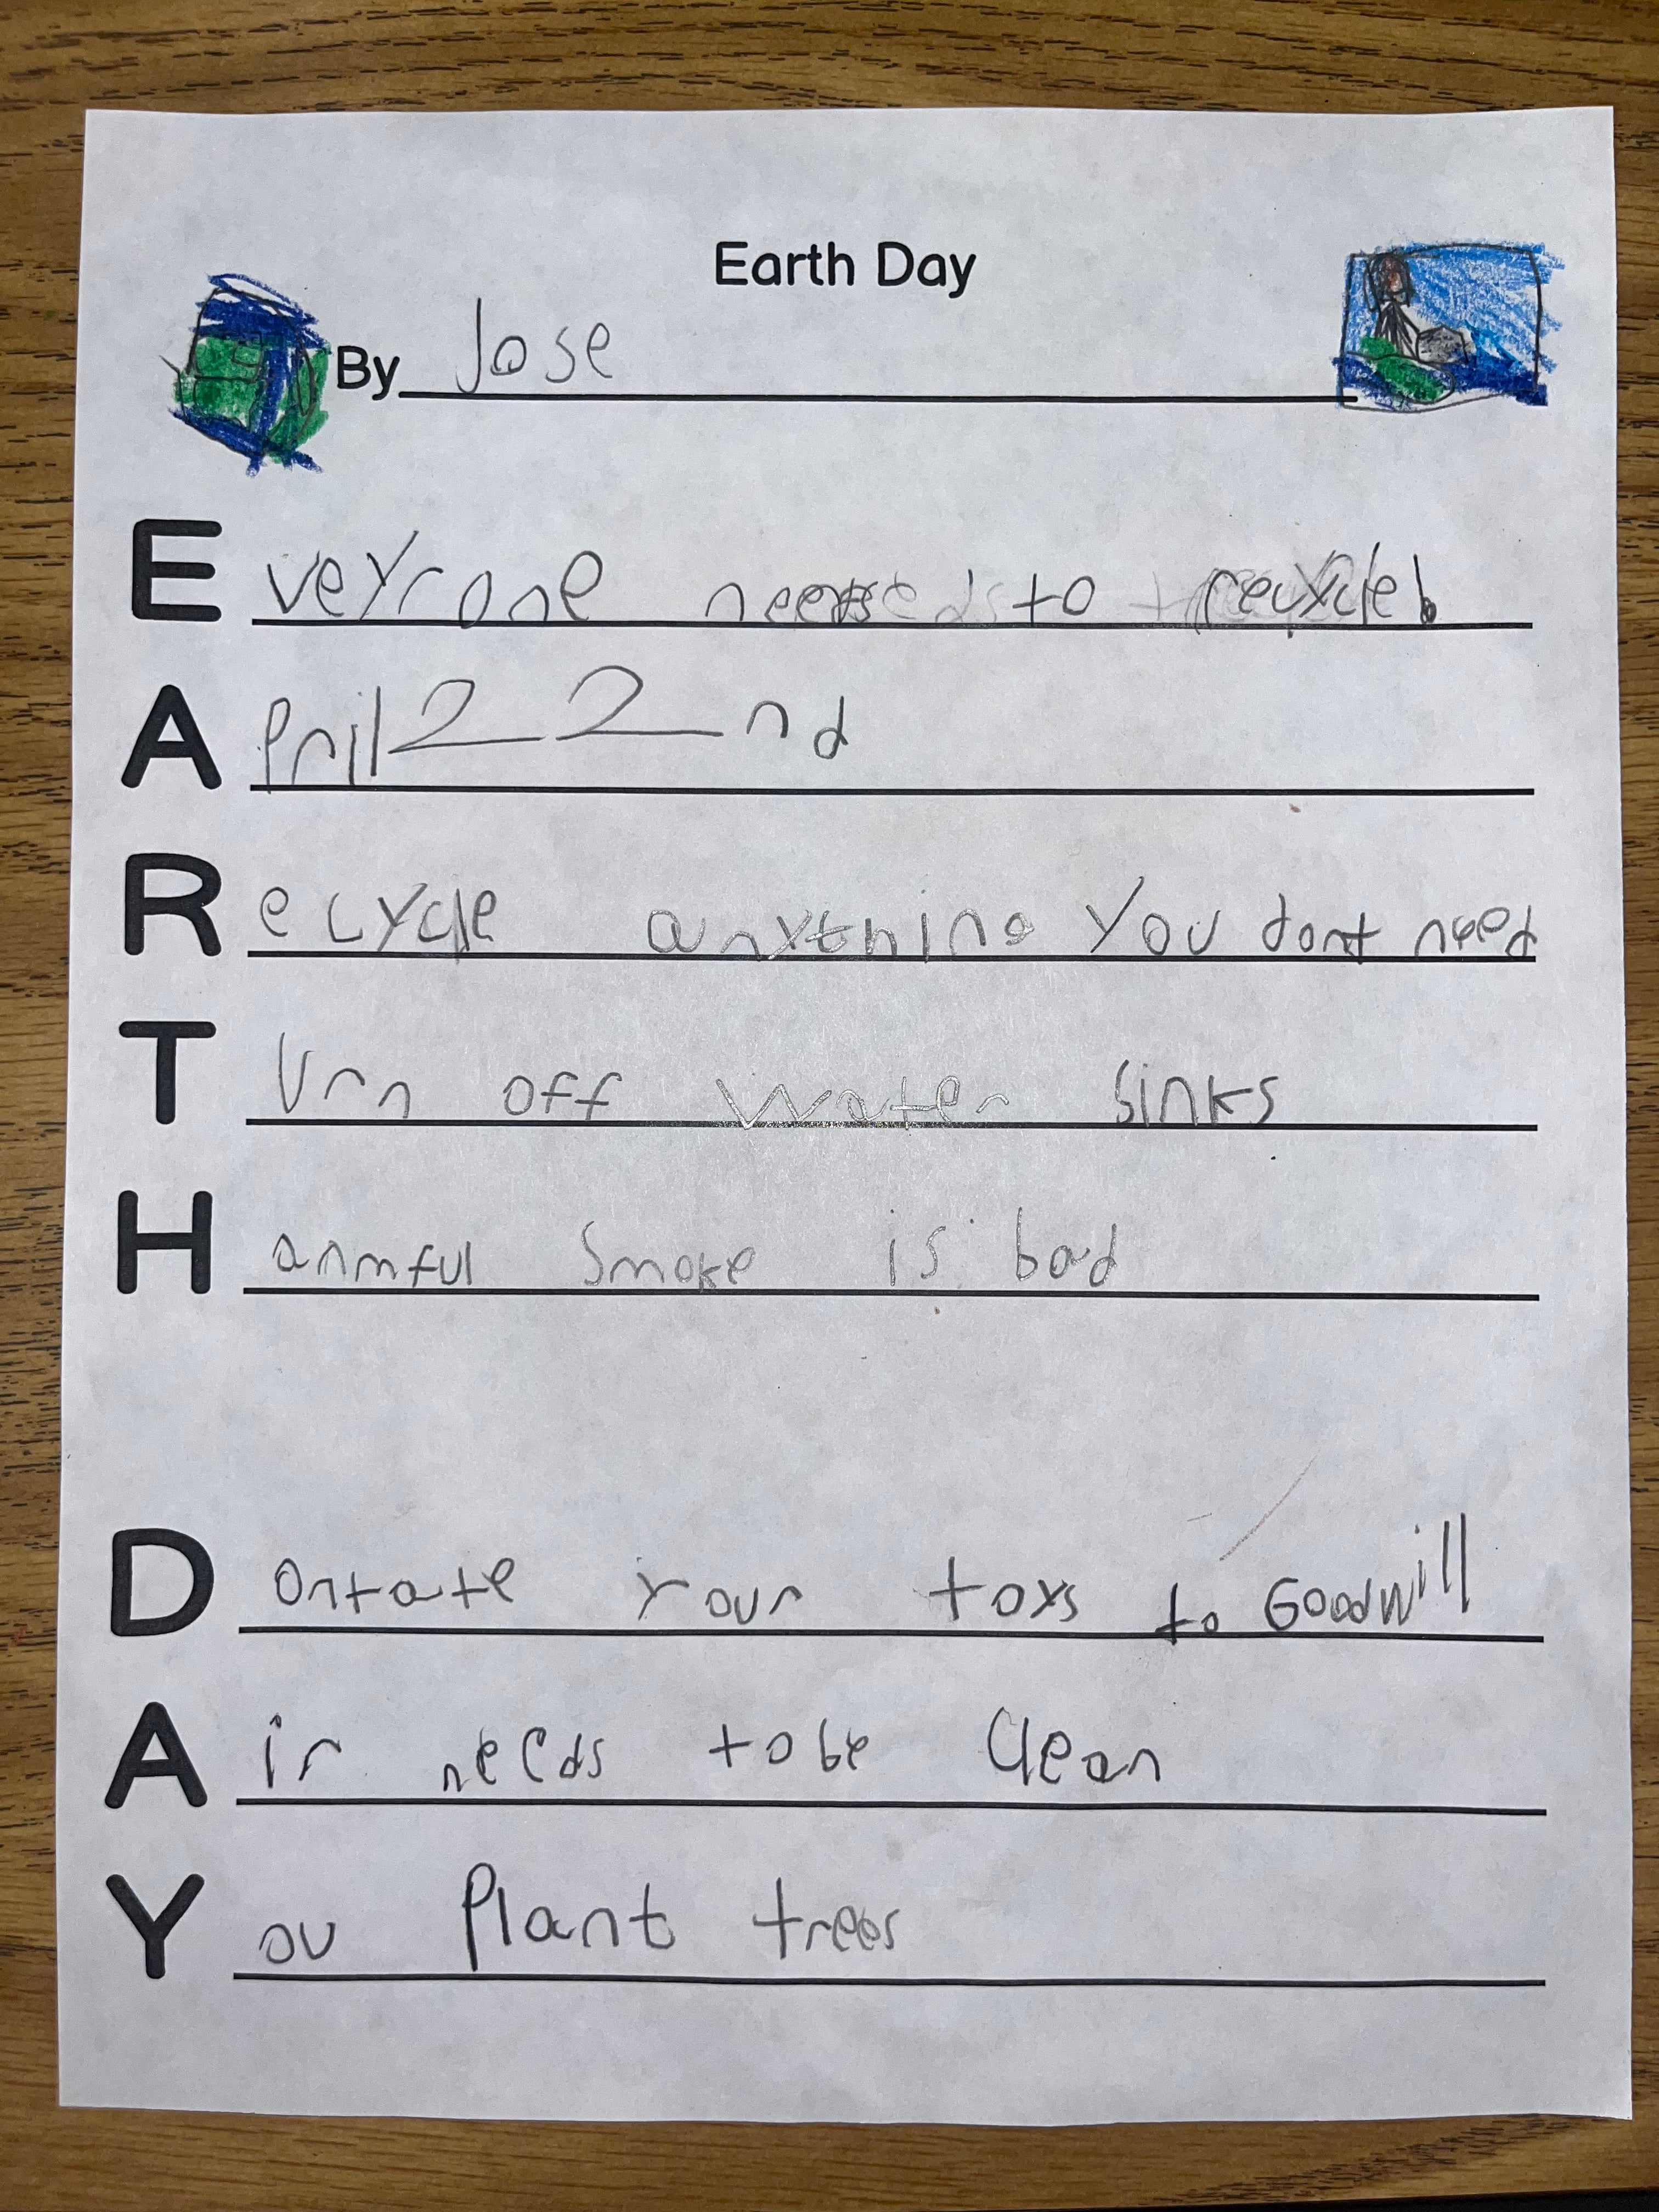 Earth Day
By Jose
Eveyrone needs to recycle!
April 22nd
Recycle anything you dont need
Turn off water sinks
Harmful smoke is bad
Dontate your toys to Goodwill
Air needs to be clean
You plant trees